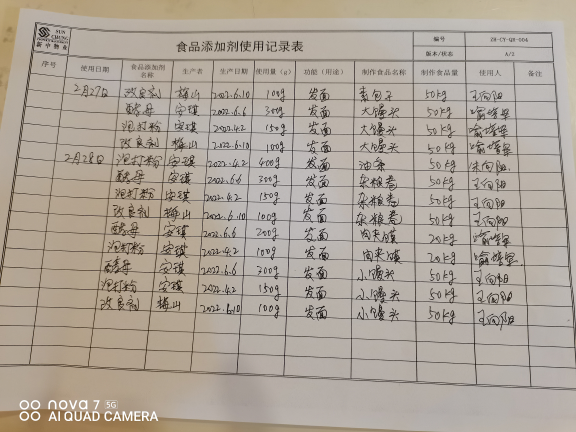 SUN CHUNG
新中物业
食品添加剂使用记录表
编号 ZH-CY-QR-004
版本/状态 A/0
序号 使用日期 食品添加剂名称 生产者 生产日期 使用量(g) 功能(用途) 制作食品名称 制作食品量 使用人 备注
2月27日 改良剂 梅山 2022.6.10 100g 发面 素包子 50kg 王向阳
酵母 安琪 2022.6.6 300g 发面 大馒头 50kg
泡打粉 安琪 2022.4.2 150g 发面 大馒头 50kg
改良剂 梅山 2022.6.10 100g 发面 大馒头 50kg
2月28日 泡打粉 安琪 2022.4.2 400g 发面 油条 50kg 朱向阳
酵母 安琪 2022.6.6 300g 发面 杂粮卷 50kg 王向阳
泡打粉 安琪 2022.4.2 150g 发面 杂粮卷 50kg 王向阳
改良剂 梅山 2022.6.10 100g 发面 杂粮卷 50kg 王向阳
酵母 安琪 2022.6.6 200g 发面 肉夹馍 20kg
泡打粉 安琪 2022.4.2 100g 发面 肉夹馍 20kg
酵母 安琪 2022.6.6 300g 发面 小馒头 50kg 王向阳
泡打粉 安琪 2022.4.2 150g 发面 小馒头 50kg 王向阳
改良剂 梅山 2022.6.10 100g 发面 小馒头 50kg 王向阳
nova 7 5G
AI QUAD CAMERA